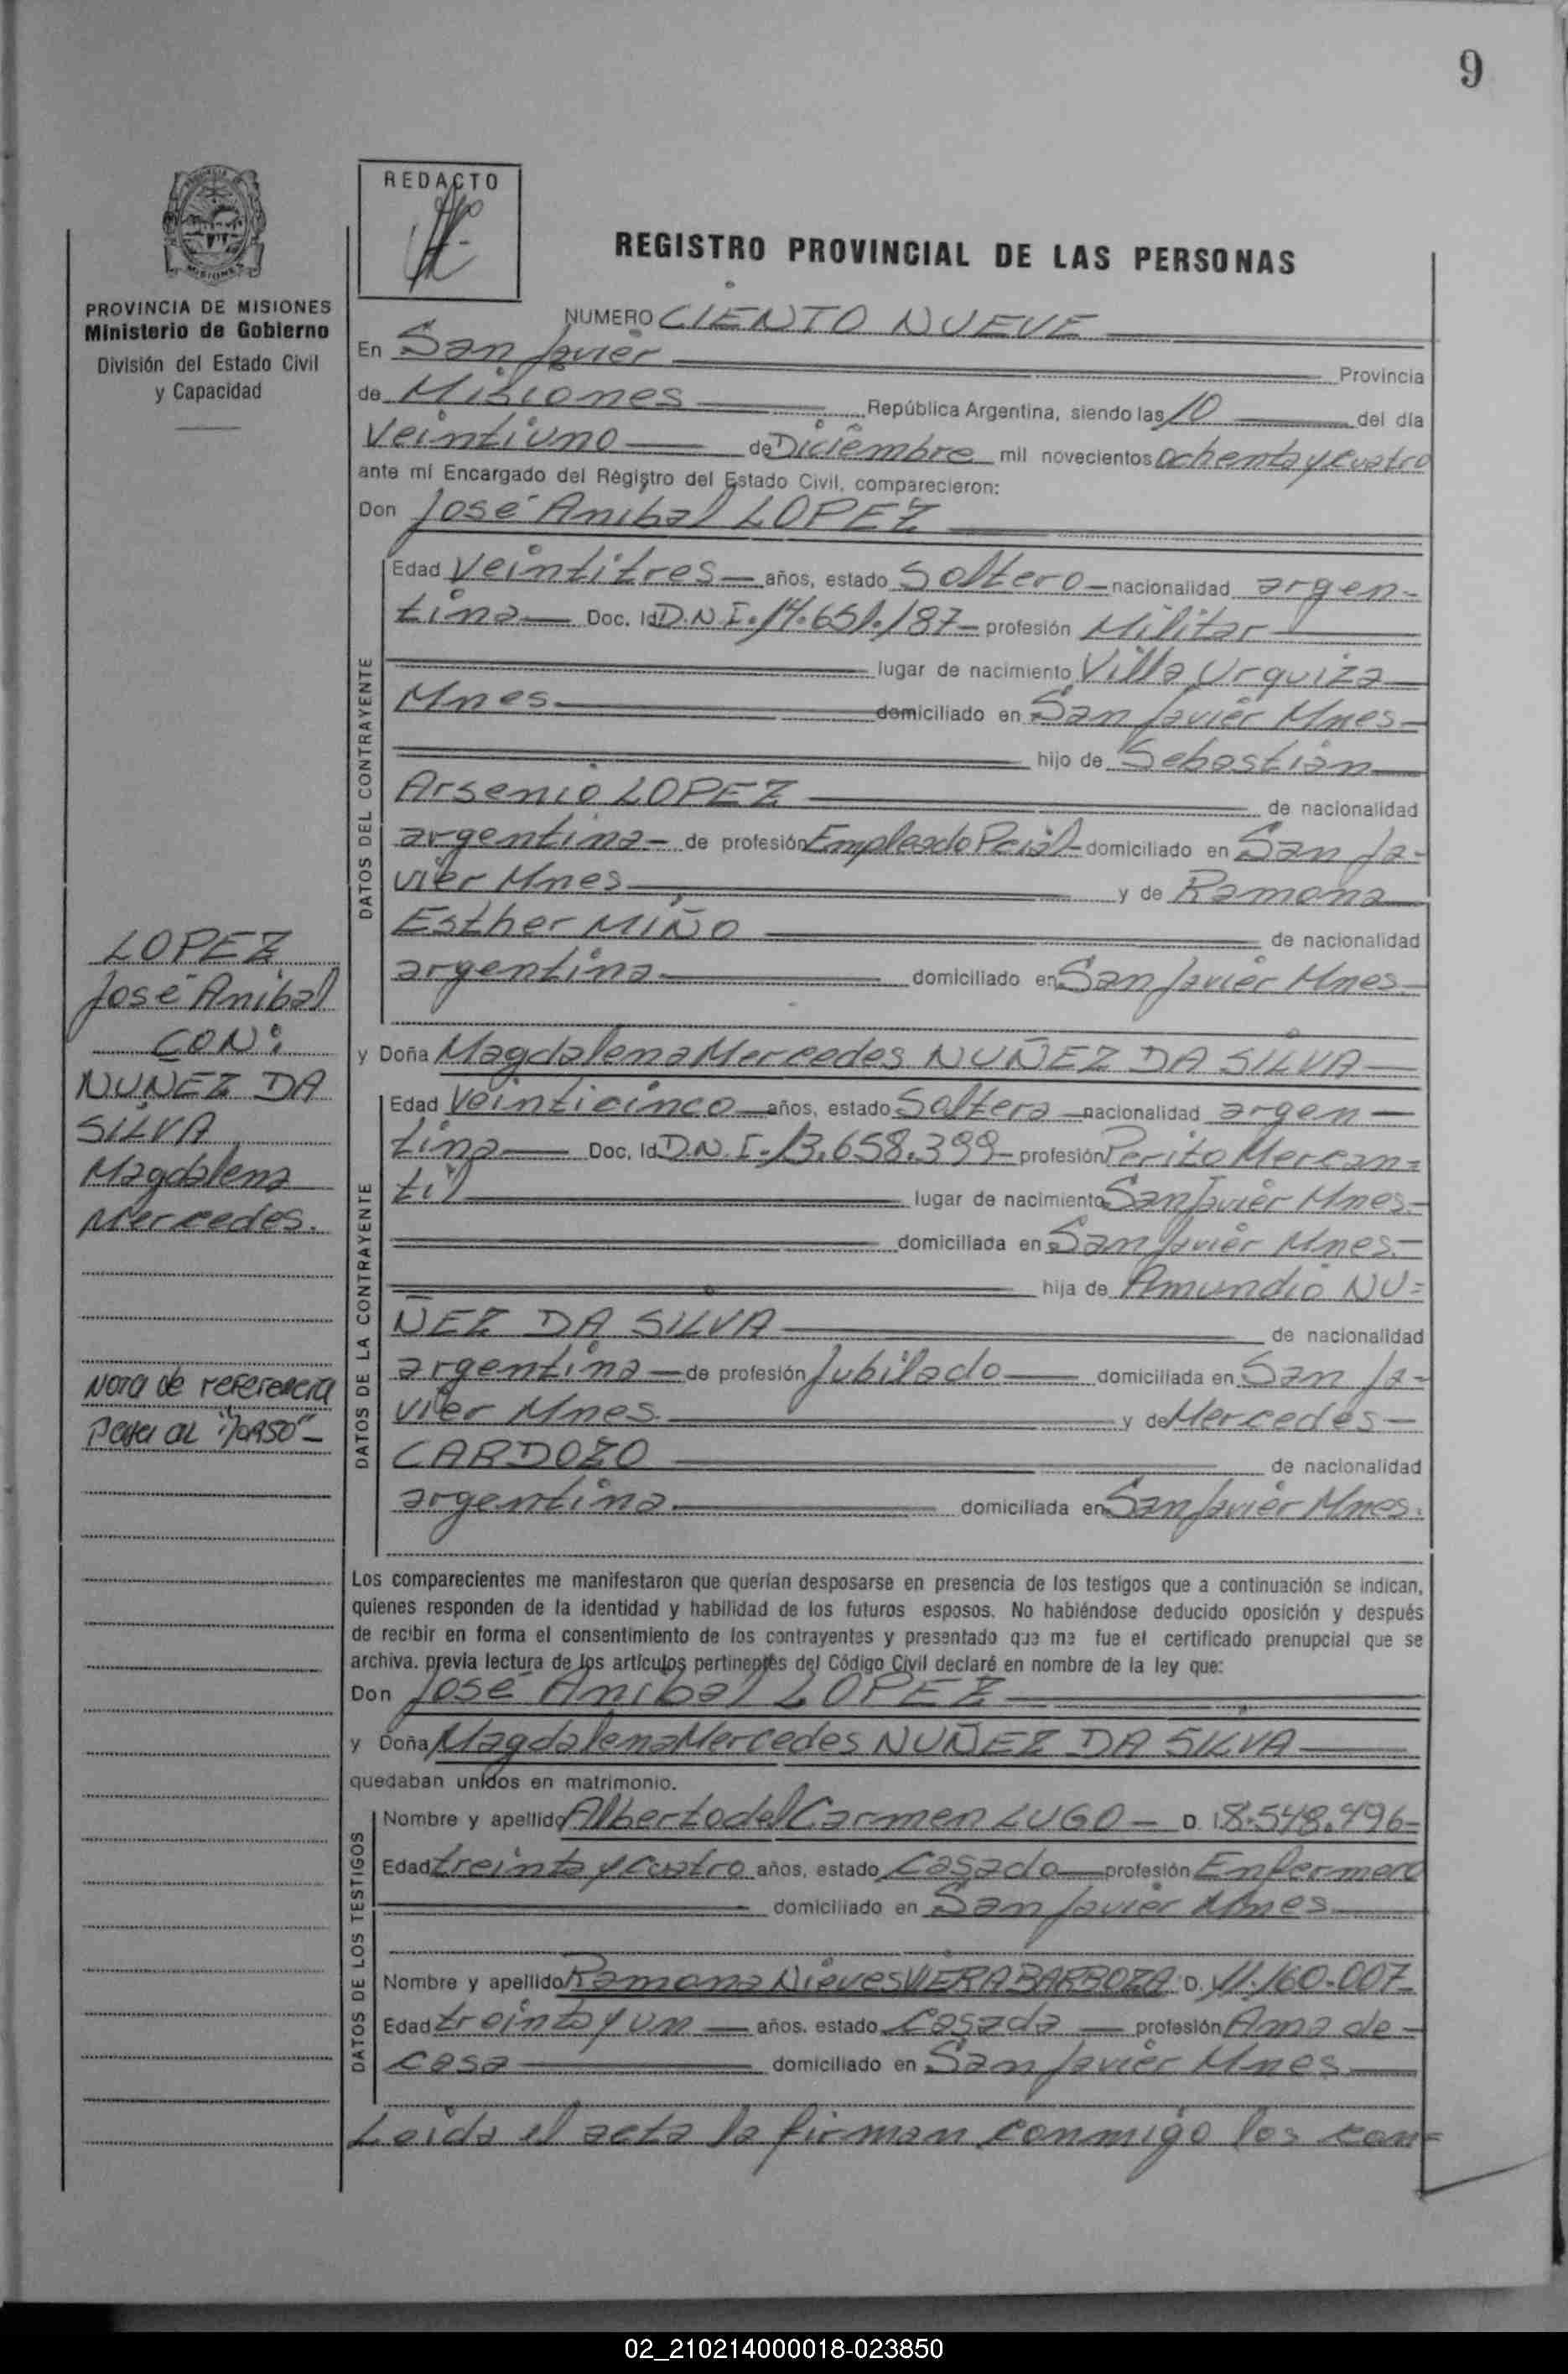 9
REDACTO
REGISTRO PROVINCIAL DE LAS PERSONAS
PROVINCIA DE MISIONES
Ministerio de Gobierno
División del Estado Civil
y Capacidad
NUMERO CIENTO NUEVE
En San Javier Provincia
de Misiones República Argentina, siendo las 10 del día
Veintiuno de Diciembre mil novecientos ochenta y cuatro
ante mí Encargado del Registro del Estado Civil, comparecieron:
Don José Anibal LOPEZ
DATOS DEL CONTRAYENTE
Edad Veintitres años, estado Soltero nacionalidad argen-
tina Doc. Id D.N.I. 14.651.187 profesión Militar
lugar de nacimiento Villa Urquiza
Mnes. domiciliado en San Javier Mnes.
hijo de Sebastian
Arsenio LOPEZ de nacionalidad
argentina de profesión Empleado Pcial domiciliado en San Ja-
vier Mnes y de Ramona
Esther MIÑO de nacionalidad
argentina domiciliado en San Javier Mnes.
LOPEZ
José Anibal
CON:
NUÑEZ DA
SILVA
Magdalena
Mercedes.
Nota de referencia
pasa al "dorso"
y Doña Magdalena Mercedes NUÑEZ DA SILVA
DATOS DE LA CONTRAYENTE
Edad Veinticinco años, estado Soltera nacionalidad argen-
tina Doc. Id D.N.I. 13.658.399 profesión Perito Mercan=
til lugar de nacimiento San Javier Mnes.
domiciliada en San Javier Mnes.
hija de Amundio NU=
ÑEZ DA SILVA de nacionalidad
argentina de profesión Jubilado domiciliada en San Ja-
vier Mnes. y de Mercedes
CARDOZO de nacionalidad
argentina domiciliada en San Javier Mnes.
Los comparecientes me manifestaron que querían desposarse en presencia de los testigos que a continuación se indican,
quienes responden de la identidad y habilidad de los futuros esposos. No habiéndose deducido oposición y después
de recibir en forma el consentimiento de los contrayentes y presentado que me fue el certificado prenupcial que se
archiva. previa lectura de los artículos pertinentes del Código Civil declaré en nombre de la ley que:
Don José Anibal LOPEZ
y Doña Magdalena Mercedes NUÑEZ DA SILVA
quedaban unidos en matrimonio.
DATOS DE LOS TESTIGOS
Nombre y apellido Alberto del Carmen LUGO D. I 8.548.496=
Edad treinta y cuatro años, estado Casado profesión Enfermero
domiciliado en San Javier Mnes
Nombre y apellido Ramona Nieves VIERA BARBOZA D. I 11.160.007
Edad treinta y un años. estado Casada profesión Ama de
casa domiciliado en San Javier Mnes
Leída el acta la firman conmigo los con=
02_210214000018-023850